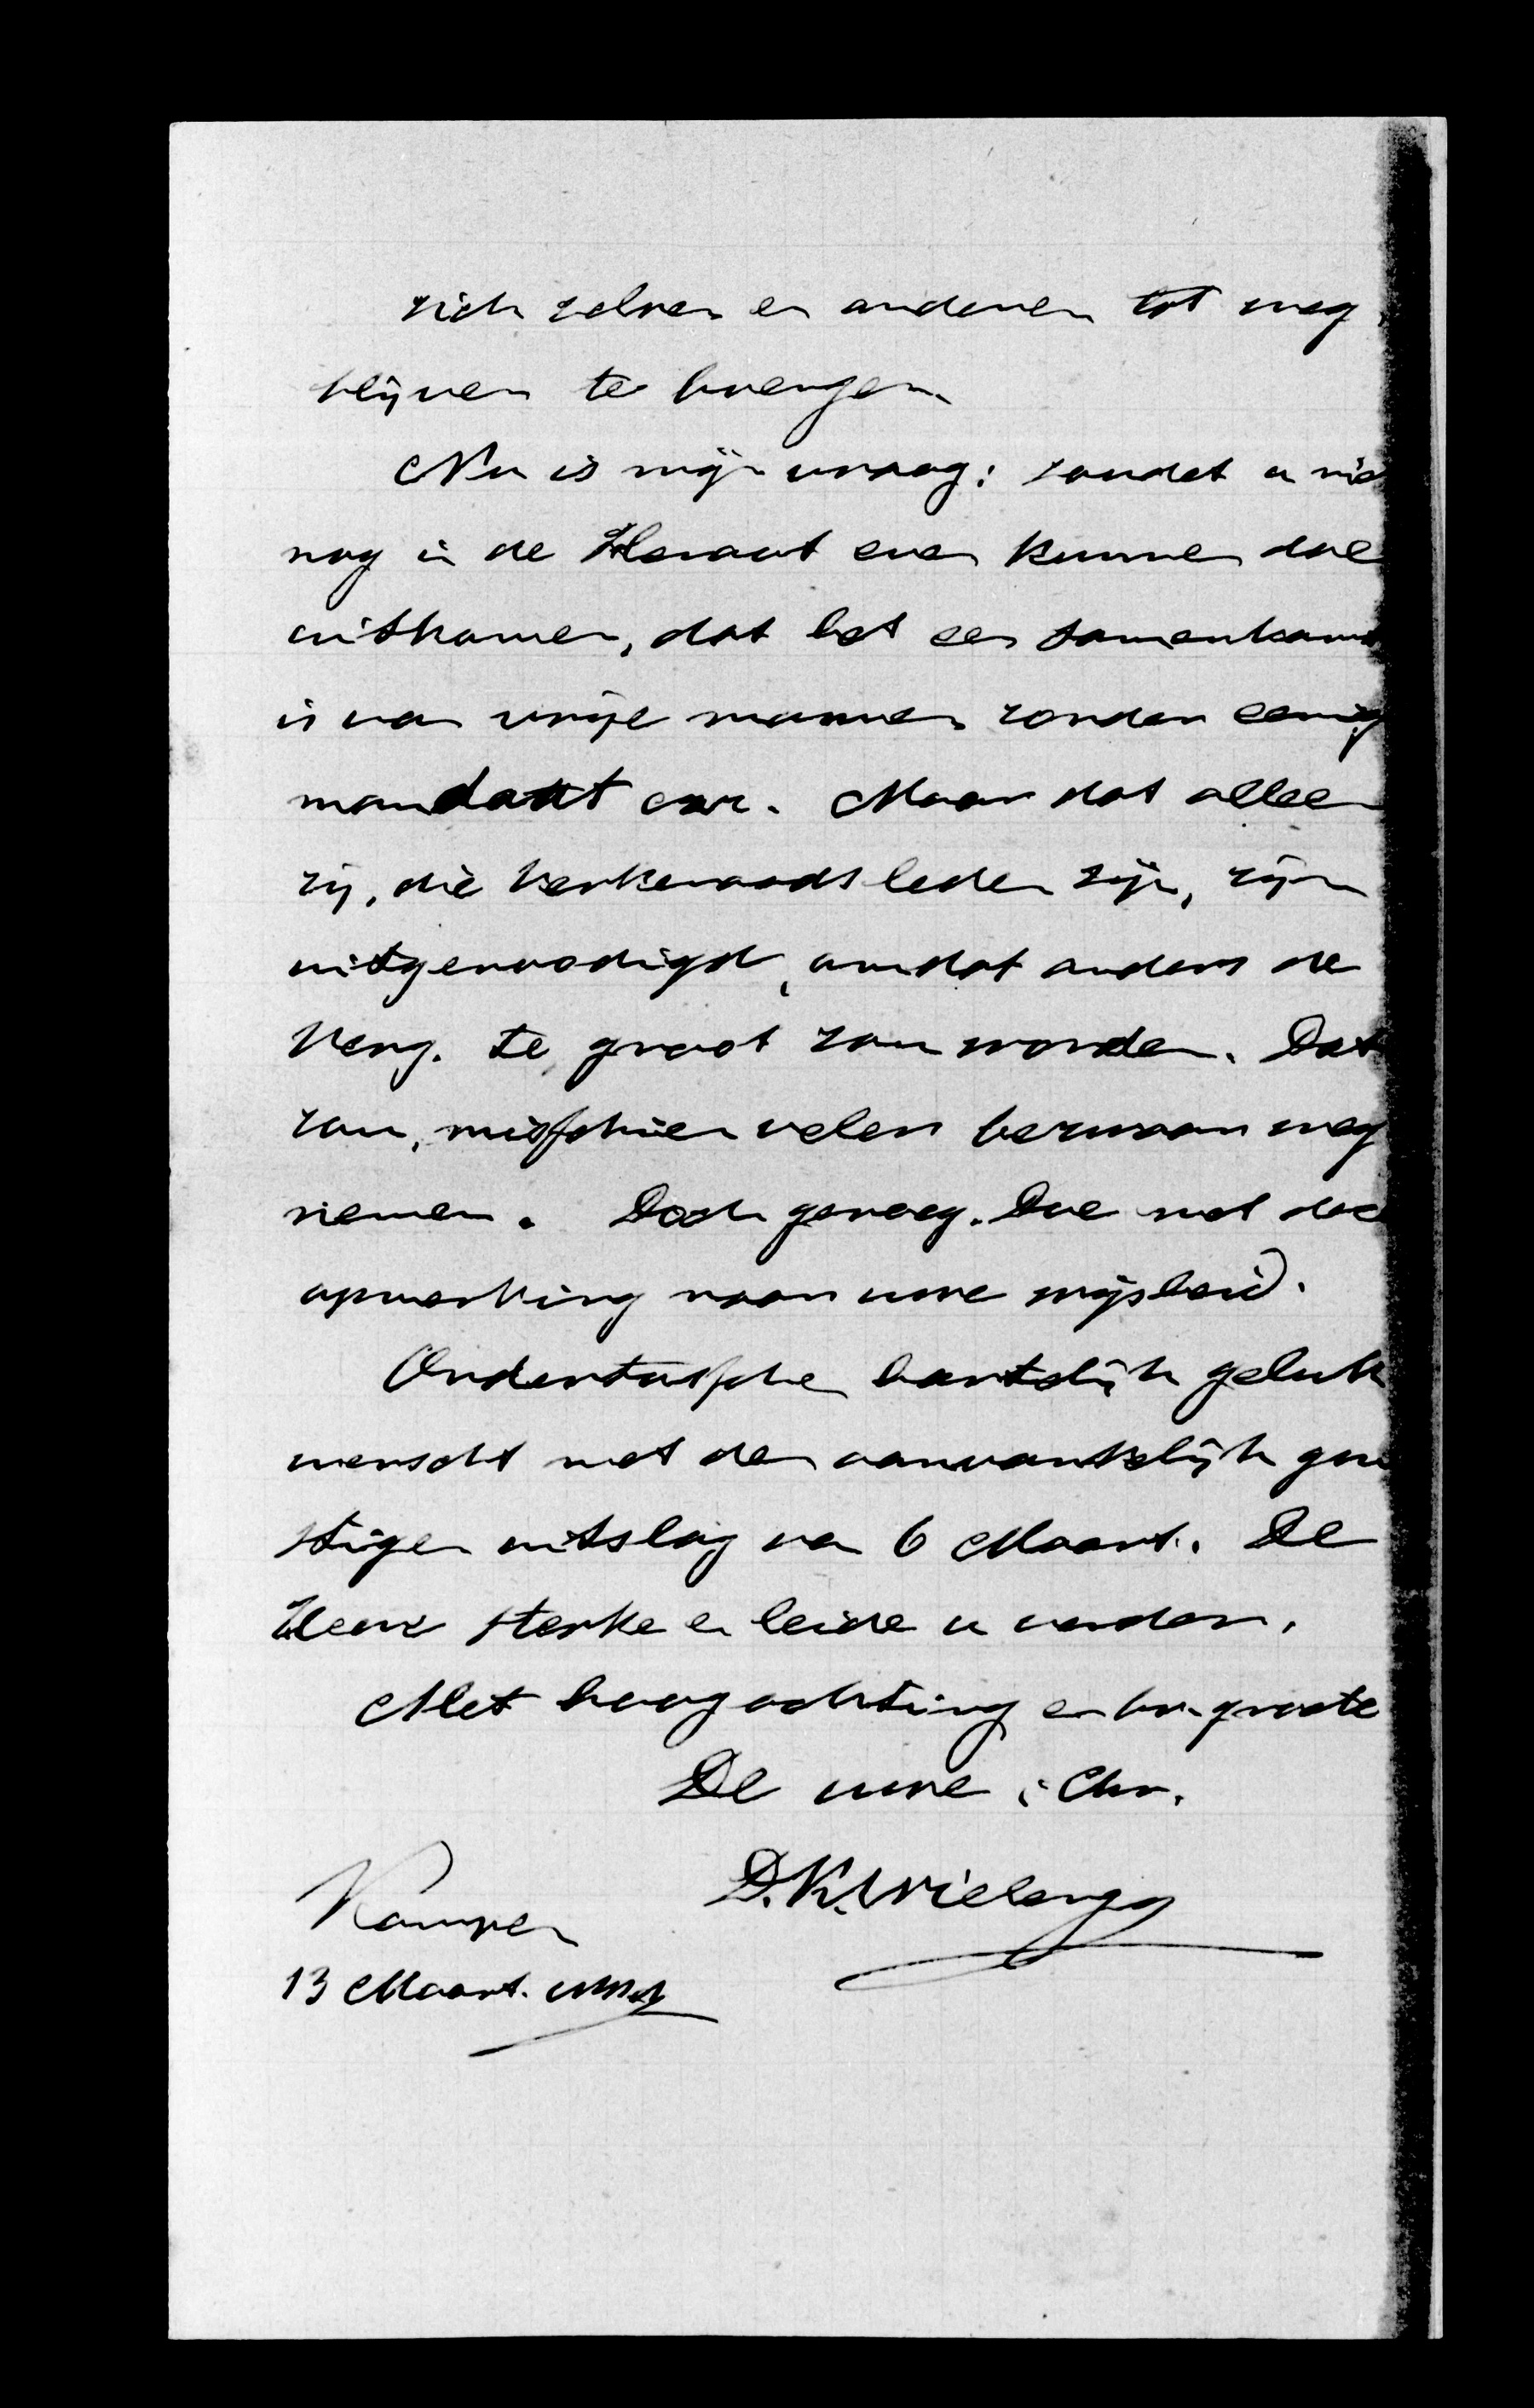 zich zelven en anderen tot weg
blijven te brengen.
Nu is mijn vraag: zoudet u nie
nog in de Heraut even kunnen doe
uitkomen, dat het een samenkoms
is van vrije mannen zonder eenig
mandaat enz. Maar dat alleen
zij, die kerkeraadsleden zijn, zijn
uitgenoodigd, omdat anders de
Verg. te groot zou worden. Dat
zou misschien velen bezwaar weg
nemen. Doch genoeg. Doe met deez
opmerking naar uwe wijsheid.
Ondertusschen hartelijk geluk
wenscht met den aanvankelijk gun
stigen uitslag van 6 Maart. De
Heere sterke en leide u verder.
Met hoogachting en br. groete
De uwe i. Chr.
D.K. Wielenga
Kampen
13 Maart.